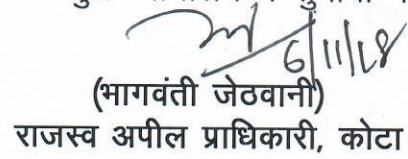 6/11/18
(भागवंती जेठवानी)
राजस्व अपील प्राधिकारी, कोटा